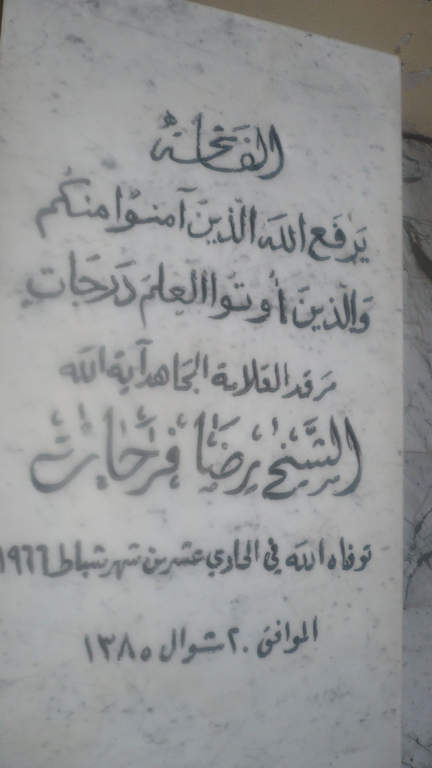 الفَاتحَة
يَرفَع اللهَ الّذينَ آمنوُا منكُم
وَالّذينَ أُوتوَا العِلمَ دَرجَاتٍ
مرقد العلامة المجاهد آية الله
الشَّيْخ رِضَا فَرَحَات
توفاه الله في الحادي عشرين شهر شباط ١٩٦٦
الموافق ٢٠ شوال ١٣٨٥